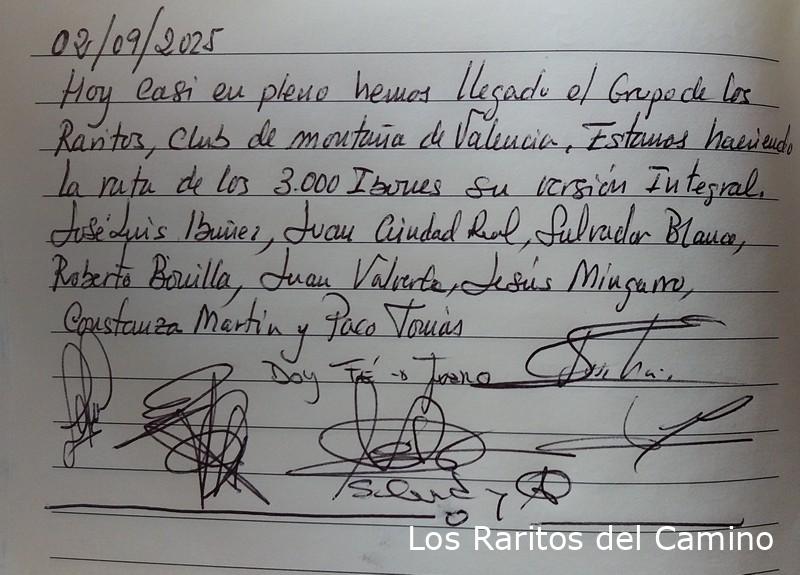 02/09/2025
Hoy Casi en pleno hemos llegado el Grupo de los
Raritos, Club de montaña de Valencia, Estamos haciendo
la ruta de los 3.000 Ibones su versión Integral.
José Luis Ibañez, Juan Ciudad Real, Salvador Blanco,
Roberto Bonilla, Juan Valverte, Jesús Mingarro,
Constanza Martín y Paco Tomás
Doy Fé
Los Raritos del Camino